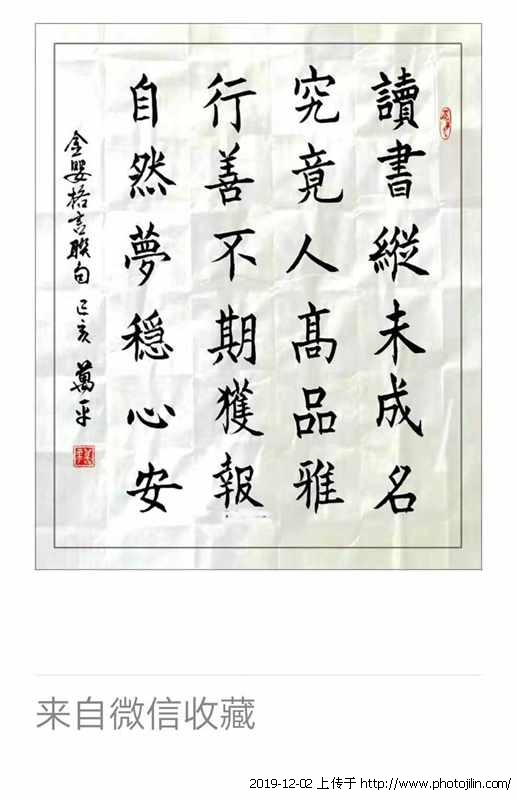 讀書縱未成名
究竟人高品雅
行善不期獲報
自然夢穩心安
金嬰格言聯句 己亥 萬平
来自微信收藏
2019-12-02 上传于 http://www.photojilin.com/